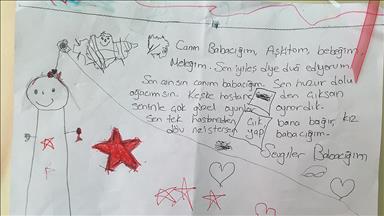 Canım Babacığım, Aşkitom, bebeğim,
Meleğim. Sen iyileş diye dua ediyorum.
Sen canımsın canım babacığım. Sen huzur dolu
ağacımsın. Keşke hastaneden çıksan
seninle çok güzel oyunlar oynardık.
Sen tek hastaneden çık bana bağır, kız
döv ne istersen yap babacığım.
Sevgiler Babacığım